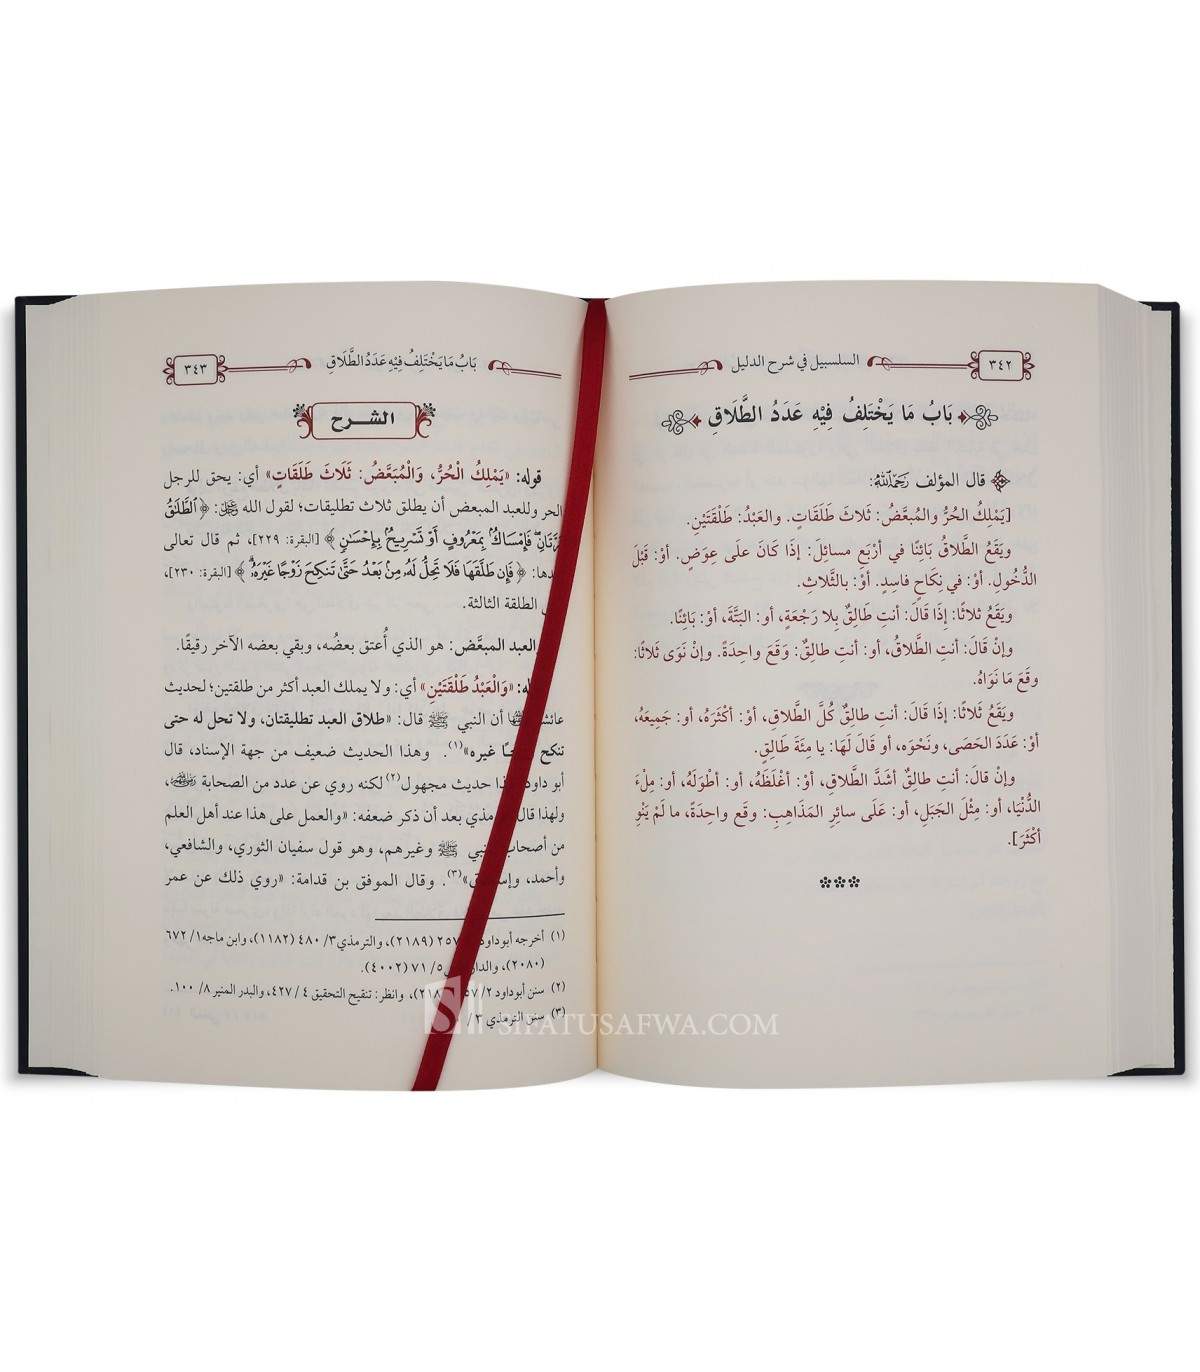 ٣٤٢
السلسبيل في شرح الدليل
بَابُ مَا يَخْتَلِفُ فِيْهِ عَدَدُ الطَّلَاقِ
قال المؤلف رَحِمَهُ اللَّهُ:
[يَمْلِكُ الحُرُّ والمُبَعَّضُ: ثَلاثَ طَلَقَاتٍ. والعَبْدُ: طَلْقَتَيْنِ.
ويَقَعُ الطَّلاقُ بَائِنًا في أرْبَعِ مسائِلَ: إذَا كَانَ علَى عِوَضٍ. أوْ: قَبْلَ
الدُّخُولِ. أوْ: في نِكَاحٍ فاسِدٍ. أوْ: بالثَّلاثِ.
ويَقَعُ ثلاثًا: إذَا قَالَ: أنتِ طَالِقٌ بِلا رَجْعَةٍ، أو: البَتَّةَ، أوْ: بَائِنًا.
وإنْ قَالَ: أنتِ الطَّلاقُ، أو: أنتِ طالِقٌ: وَقَعَ واحِدَةً. وإنْ نَوَى ثَلاثًا:
وقَعَ مَا نَوَاهُ.
ويَقَعُ ثلاثًا: إذَا قَالَ: أنتِ طالِقٌ كُلَّ الطَّلاقِ، أوْ: أكْثَرَهُ، أو: جَمِيعَهُ،
أوْ: عَدَدَ الحَصَى، ونَحْوَه، أو قَالَ لَهَا: يا مِئَةَ طَالِقٍ.
وإنْ قالَ: أنتِ طالِقٌ أشَدَّ الطَّلاقِ، أوْ: أغْلَظَهُ، أو: أطْوَلَهُ، أو: مِلْءَ
الدُّنْيَا، أو: مِثْلَ الجَبَلِ، أو: عَلَى سائِرِ المَذَاهِبِ: وقَع واحِدَةً، ما لَمْ يَنْوِ
أكْثَرَ].
بَابُ مَا يَخْتَلِفُ فِيْهِ عَدَدُ الطَّلَاقِ
٣٤٣
الشرح
قوله: «يَمْلِكُ الْحُرُّ، وَالْمُبَعَّضُ: ثَلَاثَ طَلَقَاتٍ» أي: يحق للرجل
الحر وللعبد المبعض أن يطلق ثلاث تطليقات؛ لقول الله ﷻ: ﴿الطَّلَٰقُ
فَإِمْسَاكٌۢ بِمَعْرُوفٍ أَوْ تَسْرِيحٌۢ بِإِحْسَٰنٍ﴾ [البقرة: ٢٢٩]، ثم قال تعالى
﴿فَإِن طَلَّقَهَا فَلَا تَحِلُّ لَهُۥ مِنۢ بَعْدُ حَتَّىٰ تَنكِحَ زَوْجًا غَيْرَهُۥ﴾ [البقرة: ٢٣٠]،
الطلقة الثالثة.
العبد المبعَّض: هو الذي أُعتق بعضُه، وبقي بعضه الآخر رقيقًا.
«وَالْعَبْدُ طَلْقَتَيْنِ» أي: ولا يملك العبد أكثر من طلقتين؛ لحديث
أن النبي ﷺ قال: «طلاق العبد تطليقتان، ولا تحل له حتى
تنكح غيره»(١). وهذا الحديث ضعيف من جهة الإسناد، قال
أبو داود حديث مجهول(٢) لكنه روي عن عدد من الصحابة رضي الله عنهم،
ولهذا قال بعد أن ذكر ضعفه: «والعمل على هذا عند أهل العلم
من أصحاب النبي ﷺ وغيرهم، وهو قول سفيان الثوري، والشافعي،
وأحمد، وإسحاق»(٣). وقال الموفق بن قدامة: «روي ذلك عن عمر
(١) أخرجه أبو داود (٢١٨٩)، والترمذي ٣/ ٤٨٠ (١١٨٢)، وابن ماجه ١/ ٦٧٢
(٢٠٨٠)، ٥/ ٧١ (٤٠٠٢).
(٢) سنن أبو داود ٢/ وانظر: تنقيح التحقيق ٤/ ٤٢٧، والبدر المنير ٨/ ١٠٠.
(٣) سنن الترمذي ٣/
SIFATUSAFWA.COM